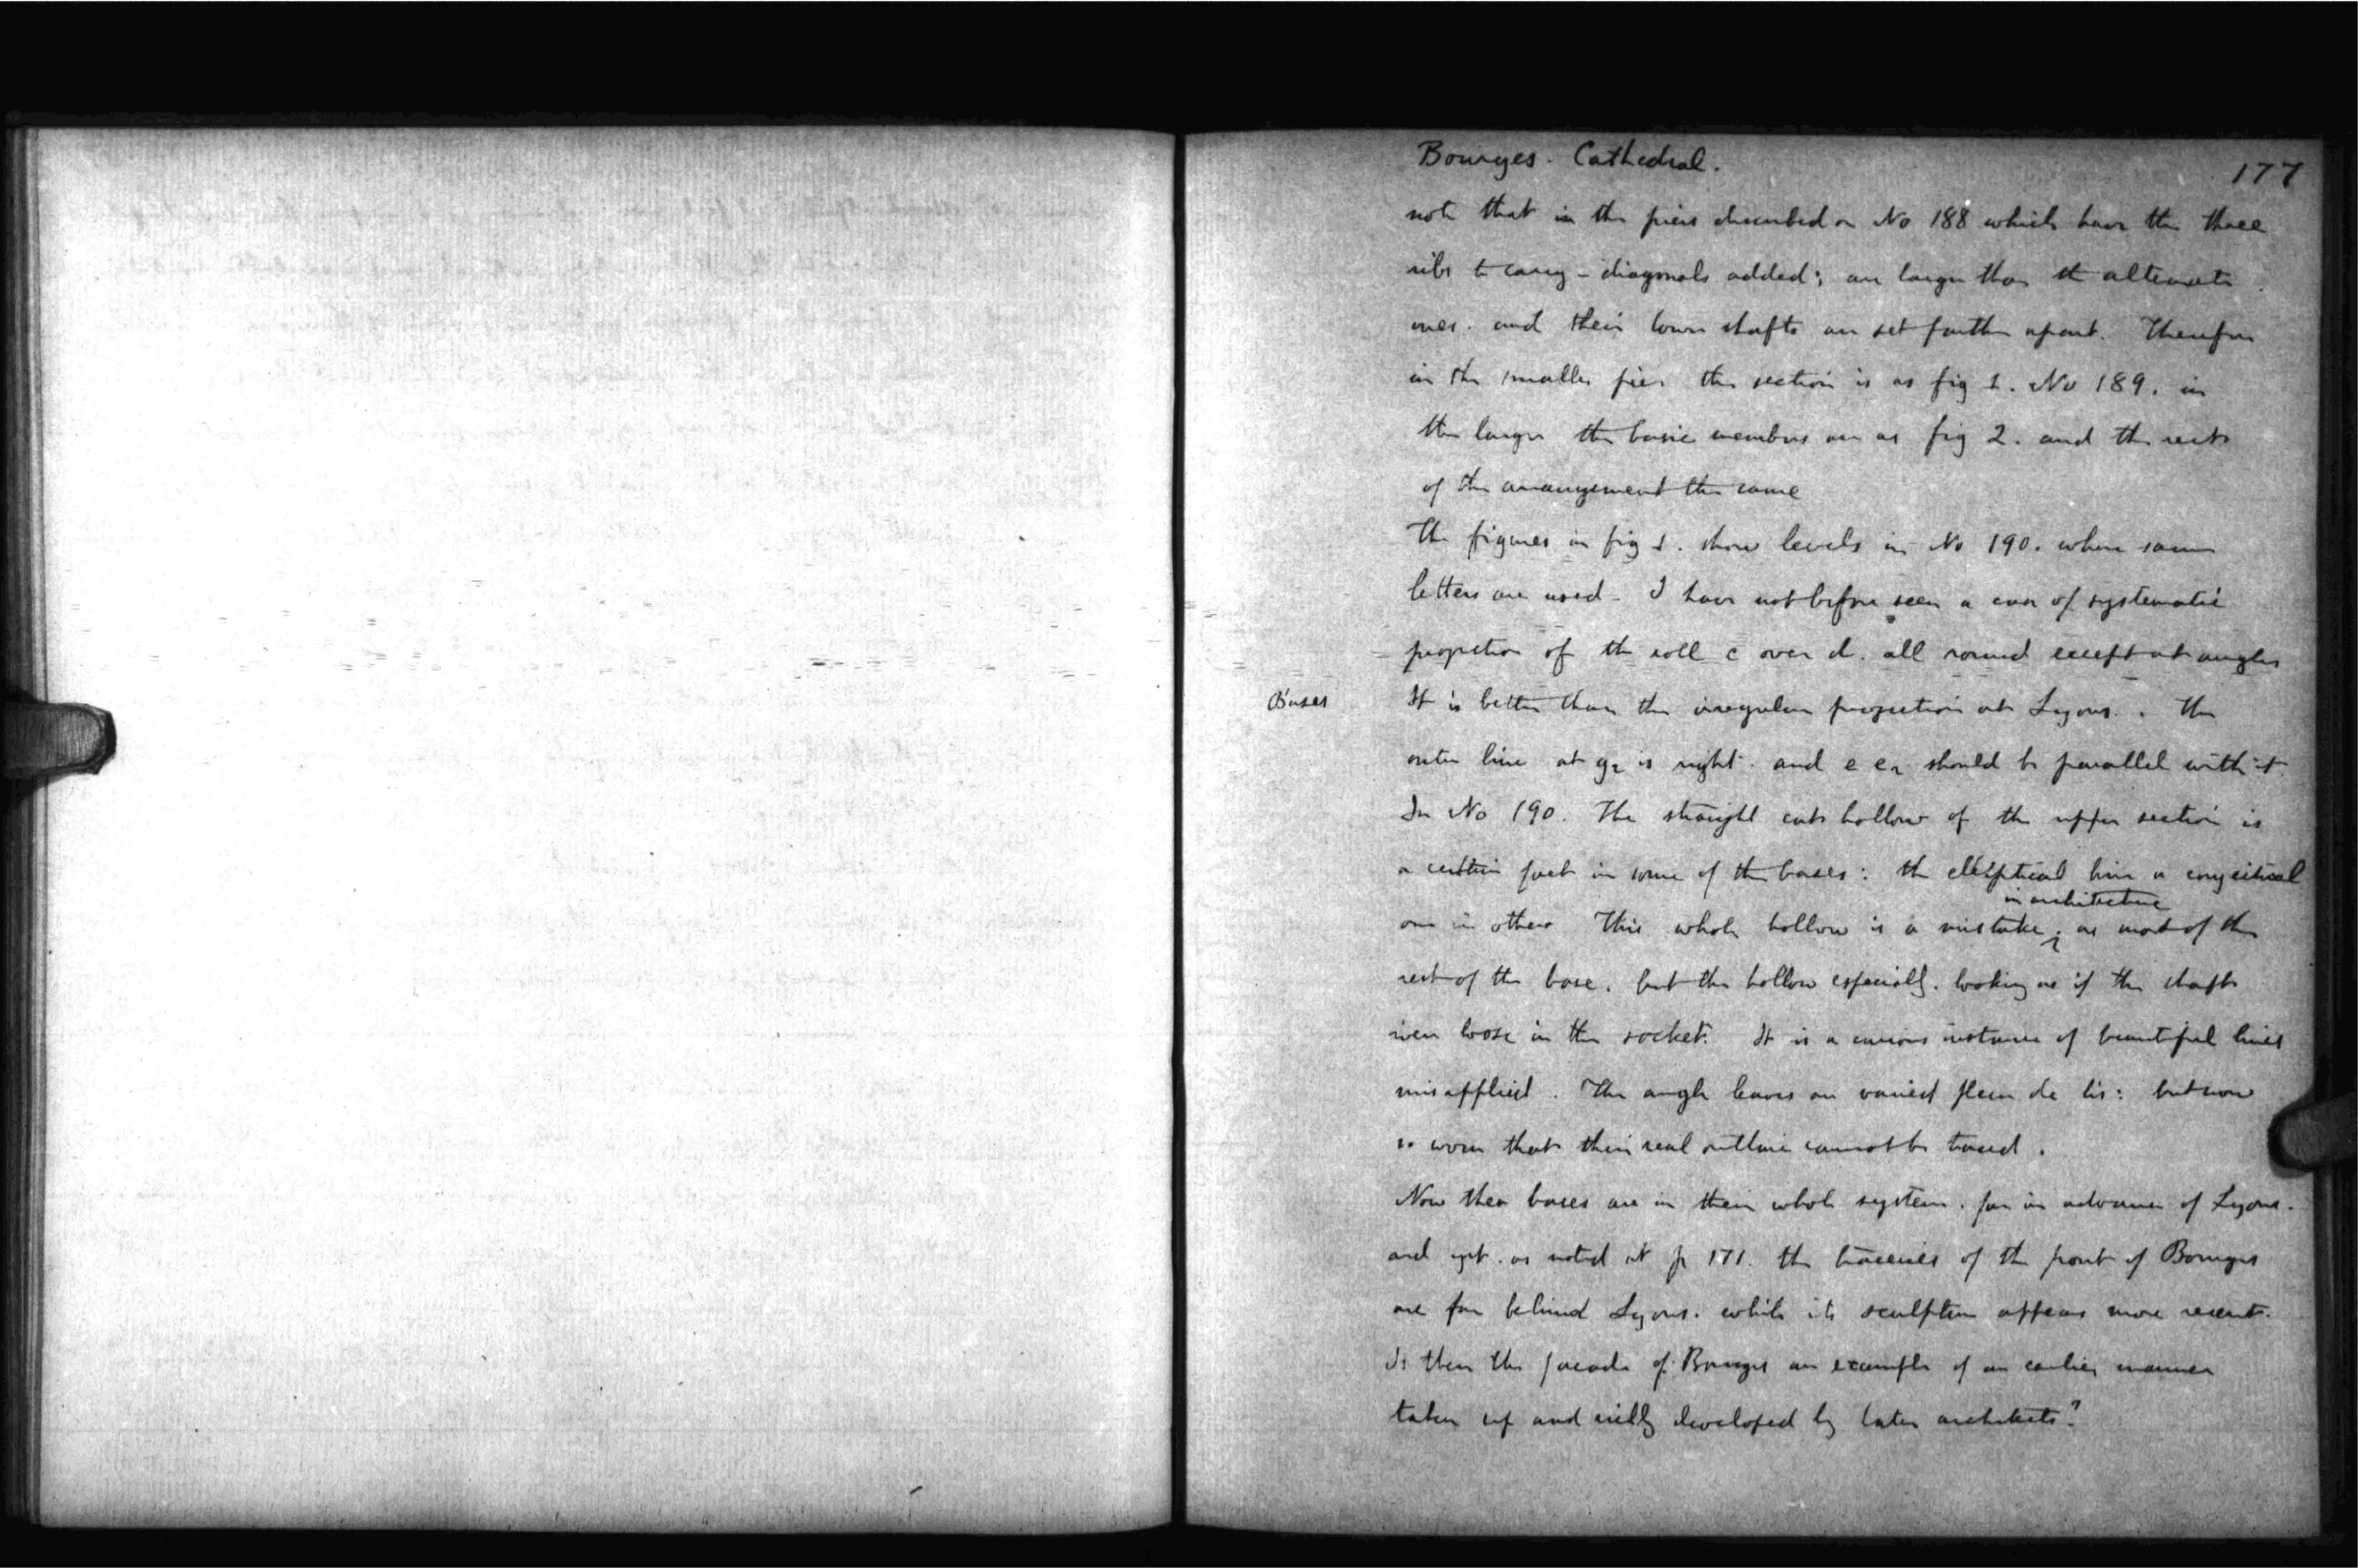 Bourges. Cathedral.
177
note that in the piers described on No 188 which have the three
ribs to carry - diagonals added; are larger than the alternate
ones. and their lower shafts are set farther apart. Therefore
in the smaller pier the section is as fig 1. No 189. in
the larger the basic members are as fig 2. and the rest
of the arrangement the same
The figures in fig 1. show levels in No 190. where same
letters are used - I have not before seen a case of systematic
projection of the roll c over d. all round except at angles
Bases
It is better than the irregular projection at Lyons. . The
outer line at g2 is right. and e e2 should be parallel with it.
In No 190. The straight cut hollow of the upper section is
a certain fact in some of the bases: the elliptical line a conjectural
in architecture
one in others This whole hollow is a mistake; as most of the
rest of the base. but the hollow especially. looking as if the shaft
were loose in the socket. It is a curious instance of beautiful lines
misapplied. The angle leaves are varied fleur de lis: but now
so worn that their real outline cannot be traced.
Now these bases are in their whole system. far in advance of Lyons.
and yet. as noted at p 171. the traceries of the front of Bourges
are far behind Lyons. while its sculpture appears more recent.
Is then the facade of Bourges an example of an earlier manner
taken up and richly developed by later architects?